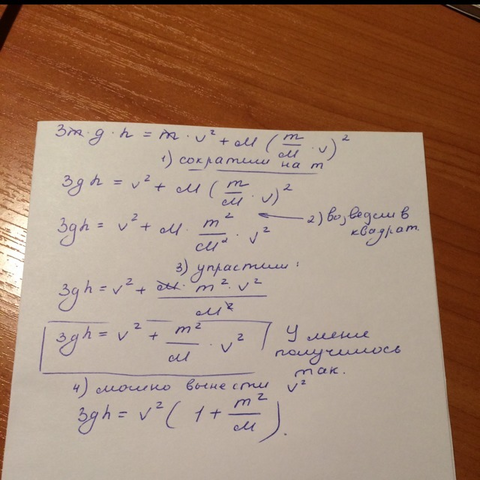 3m·g·h = m·v² + M(m/M·v)²
1) сократили на m
3gh = v² + M(m/M·v)²
3gh = v² + M·m²/M²·v²
2) возведли в квадрат.
3) упрастили:
3gh = v² + M·m²·v²/M²
3gh = v² + m²/M·v²
У меня получилось так.
4) можно вынести v²
3gh = v²(1 + m²/M).